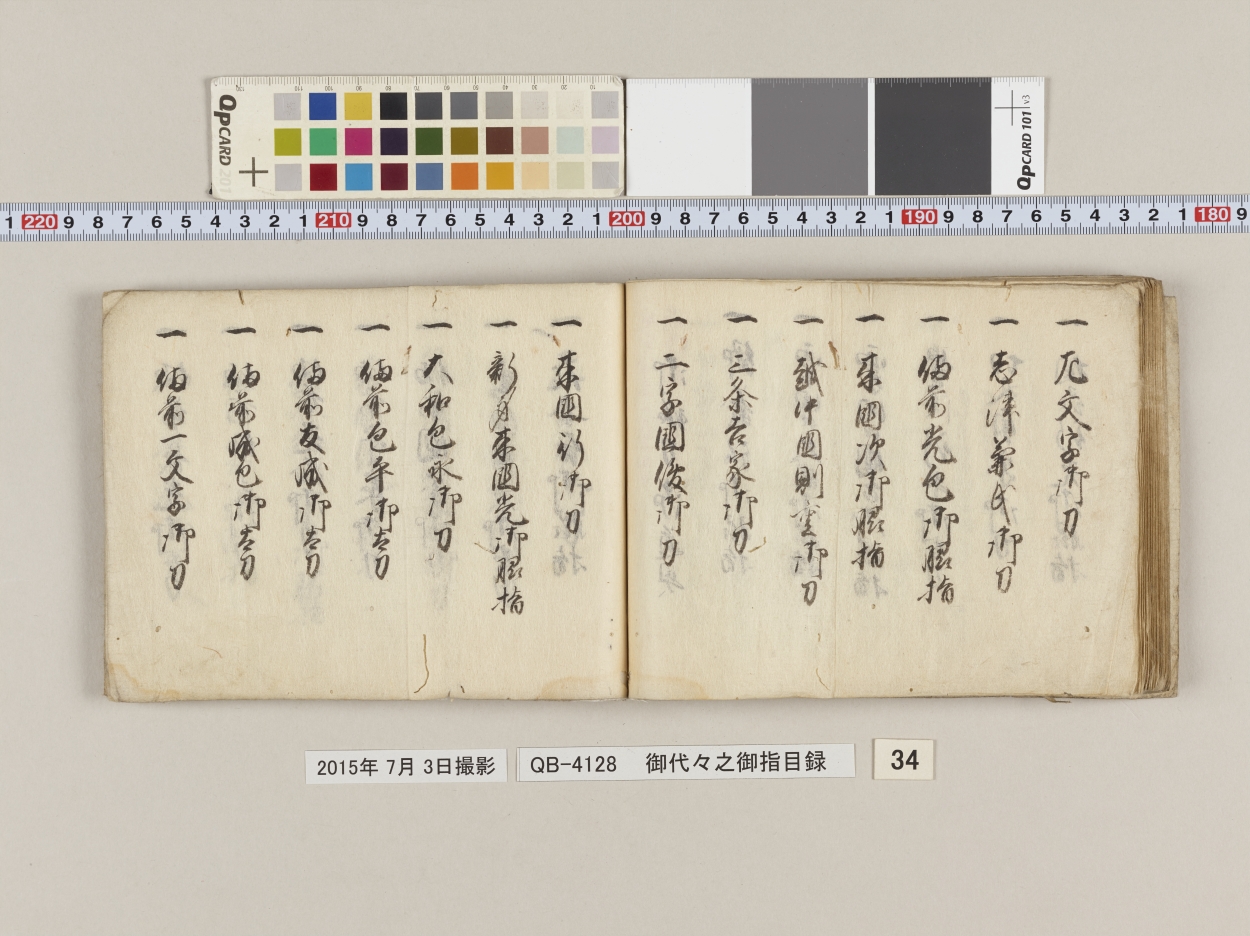 QpCARD 201
QpCARD 101 v3
1 220 9 8 7 6 5 4 3 2 1 210 9 8 7 6 5 4 3 2 1 200 9 8 7 6 5 4 3 2 1 190 9 8 7 6 5 4 3 2 1 180 9
一 文字御刀
一 志津兼氏御刀
一 備前光包御脇指
一 来國次御脇指
一 越中國則重御刀
一 三条吉家御刀
一 二字國俊御刀
一 来國行御刀
一 新身来國光御脇指
一 大和包永御刀
一 備前包平御太刀
一 備前友成御太刀
一 備前成包御太刀
一 備前一文字御刀
2015年 7月 3日撮影
QB-4128 御代々之御指目録
34